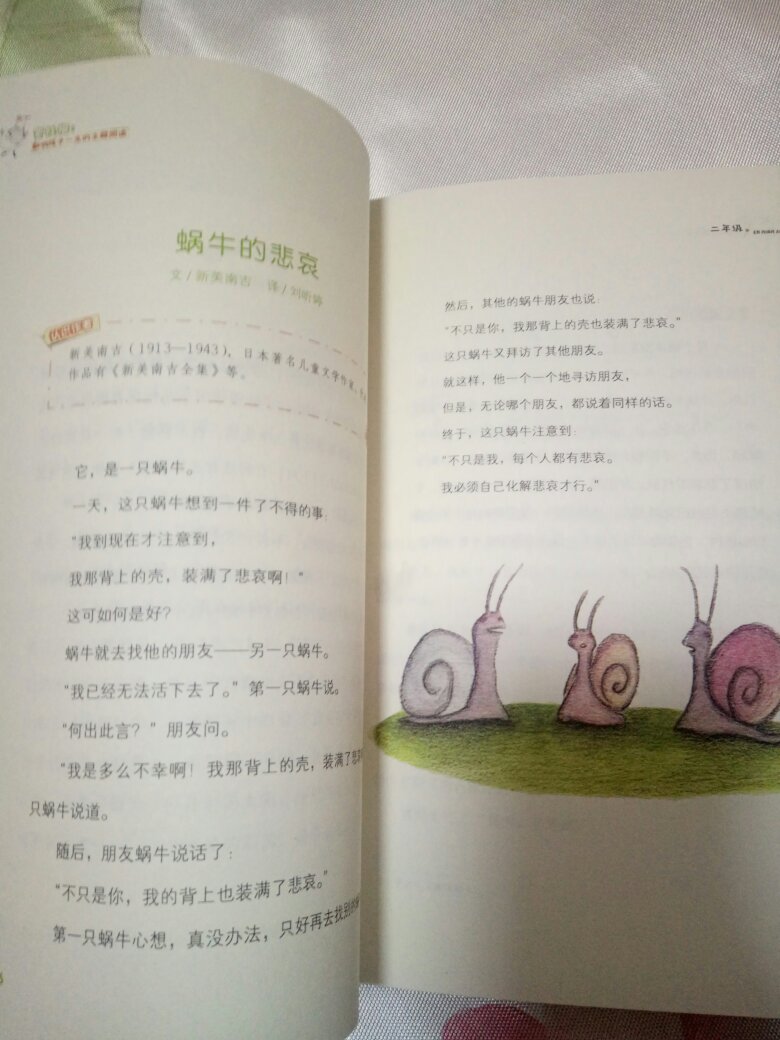 蜗牛的悲哀
文/新美南吉 译/刘昕婷
认识作者
新美南吉(1913—1943),日本著名儿童文学作家,
作品有《新美南吉全集》等。
它,是一只蜗牛。
一天,这只蜗牛想到一件了不得的事:
“我到现在才注意到,
我那背上的壳,装满了悲哀啊!”
这可如何是好?
蜗牛就去找他的朋友——另一只蜗牛。
“我已经无法活下去了。”第一只蜗牛说。
“何出此言?”朋友问。
“我是多么不幸啊!我那背上的壳,装满了悲
只蜗牛说道。
随后,朋友蜗牛说话了:
“不只是你,我的背上也装满了悲哀。”
第一只蜗牛心想,真没办法,只好再去找别
二年级
然后,其他的蜗牛朋友也说:
“不只是你,我那背上的壳也装满了悲哀。”
这只蜗牛又拜访了其他朋友。
就这样,他一个一个地寻访朋友,
但是,无论哪个朋友,都说着同样的话。
终于,这只蜗牛注意到:
“不只是我,每个人都有悲哀。
我必须自己化解悲哀才行。”